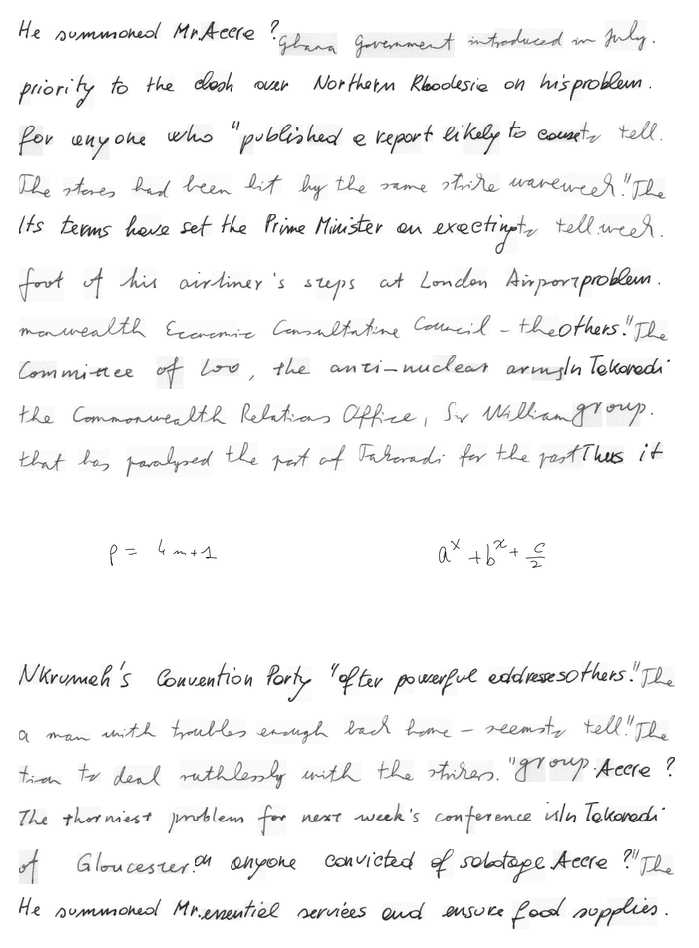 He summoned Mr. Accra ? Ghana Government introduced in July.
priority to the clash over Northern Rhodesia on his problem.
for anyone who "published a report likely to cause to tell.
The stores had been hit by the same strike wave week." The
Its terms have set the Prime Minister an exacting to tell week.
foot of his airliner's steps at London Airport problem.
monwealth Economic Consultative Council - the others." The
Committee of 100, the anti-nuclear arms In Takoradi
the Commonwealth Relations Office, Sir William group.
that has paralysed the port of Takoradi for the past Thus it
p = 4m+1
a^x + b^x + c/2
Nkrumah's Convention Party "after powerful addresses others." The
a man with troubles enough back home - seems to tell." The
tion to deal ruthlessly with the strikers. "group. Accra ?
The thorniest problem for next week's conference is In Takoradi
of Gloucester. on anyone convicted of sabotage. Accra ?" The
He summoned Mr. essential services and ensure food supplies.